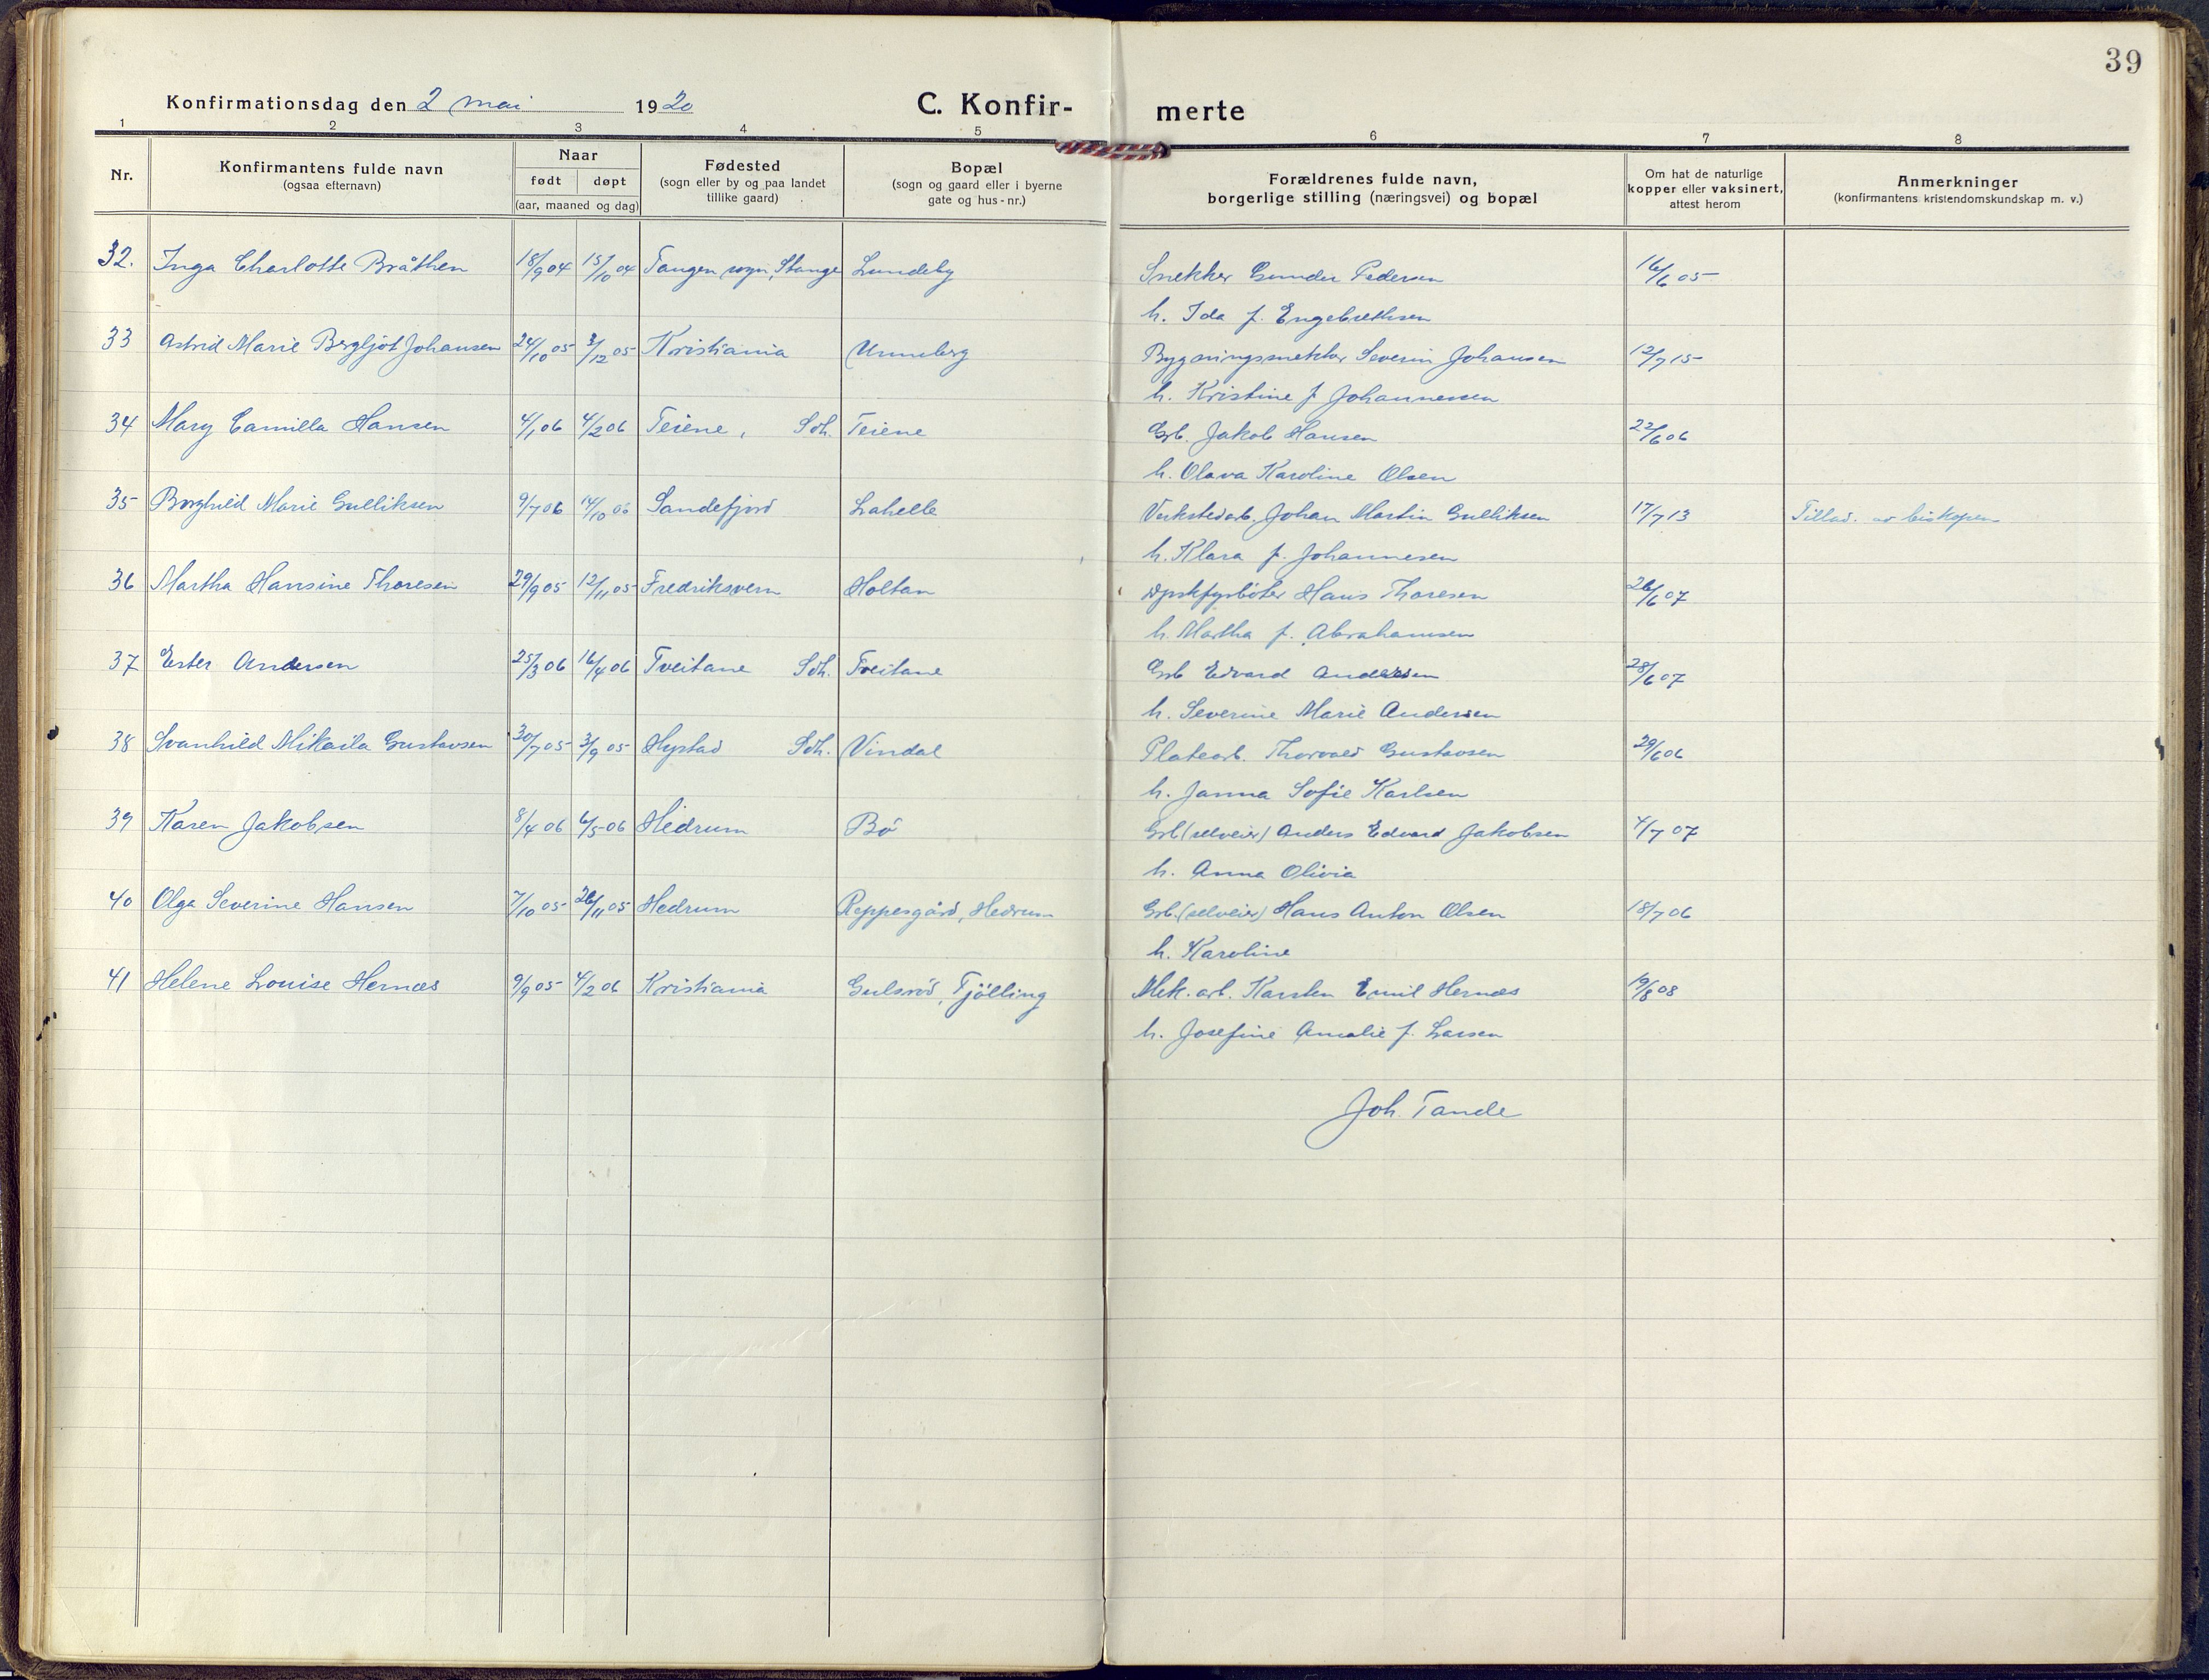 39
Konfirmationsdag den 2 mai 1920
C. Konfir- merte
1 2 3 4 5 6 7 8
Nr.
Konfirmantens fulde navn
(ogsaa efternavn)
Naar
født døpt
(aar, maaned og dag)
Fødested
(sogn eller by og paa landet
tillike gaard)
Bopæl
(sogn og gaard eller i byerne
gate og hus-nr.)
Forældrenes fulde navn,
borgerlige stilling (næringsvei) og bopæl
Om hat de naturlige
kopper eller vaksinert,
attest herom
Anmerkninger
(konfirmantens kristendomskundskap m. v.)
32. Inga Charlotte Bråthen 18/9 04 15/10 04 Tangen sogn, Stange Lundeby Snekker Gunder Pedersen 16/6 05
h. Ida f. Engebrethsen
33 Astrid Marie Bergljot Johansen 24/10 05 3/12 05 Kristiania Unneberg Bygningssnekker Severin Johansen 12/7 15
h. Kristine f Johannessen
34 Mary Camilla Hansen 4/1 06 4/2 06 Teiene, Sdh. Teiene Grb. Jakob Hansen 22/6 06
h. Olava Karoline Olsen
35 Borghild Marie Gulliksen 9/7 06 14/10 06 Sandefjord Lahelle Verkstedarb. Johan Martin Gulliksen 17/7 13 Tillad. av biskopen
h. Klara f. Johannesen
36 Martha Hansine Thoresen 29/9 05 12/11 05 Fredriksvern Holtan Hans Thoresen 26/6 07
h. Martha f. Abrahamsen
37 Ester Andersen 25/3 06 16/4 06 Tveitane Sdh. Tveitane Grb Edvard Andersen 28/6 07
h. Severine Marie Andersen
38 Svanhild Mikaila Gustavsen 30/7 05 3/9 05 Hystad Sdh. Vindal Platearb. Thorvald Gustavsen 29/6 06
h. Janna Sofie Karlsen
39 Karen Jakobsen 8/4 06 6/5 06 Hedrum Bø Grb (selveier) Anders Edvard Jakobsen 4/7 07
h. Anna Olivia
40 Olga Severine Hansen 7/10 05 26/11 05 Hedrum Reppesgård, Hedrum Grb. (selveier) Hans Anton Olsen 18/7 06
h. Karoline
41 Helene Louise Hernæs 9/9 05 4/2 06 Kristiania Gulsrød, Tjølling Mek. arb. Karsten Emil Hernæs 19/8 08
h. Josefine Amalie f. Larsen
Joh. Tande